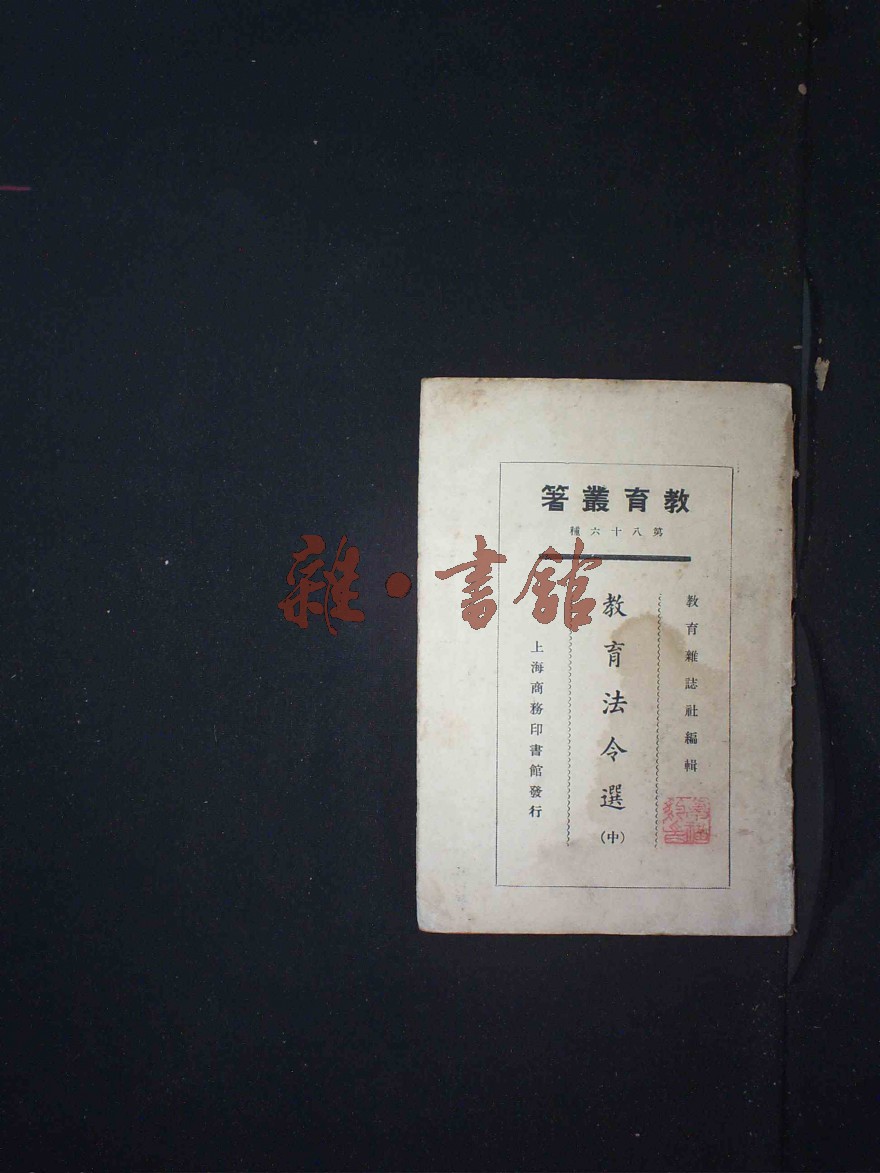 教育叢著
第八十六種
教育雜誌社編輯
教育法令選(中)
上海商務印書館發行
雜·書館